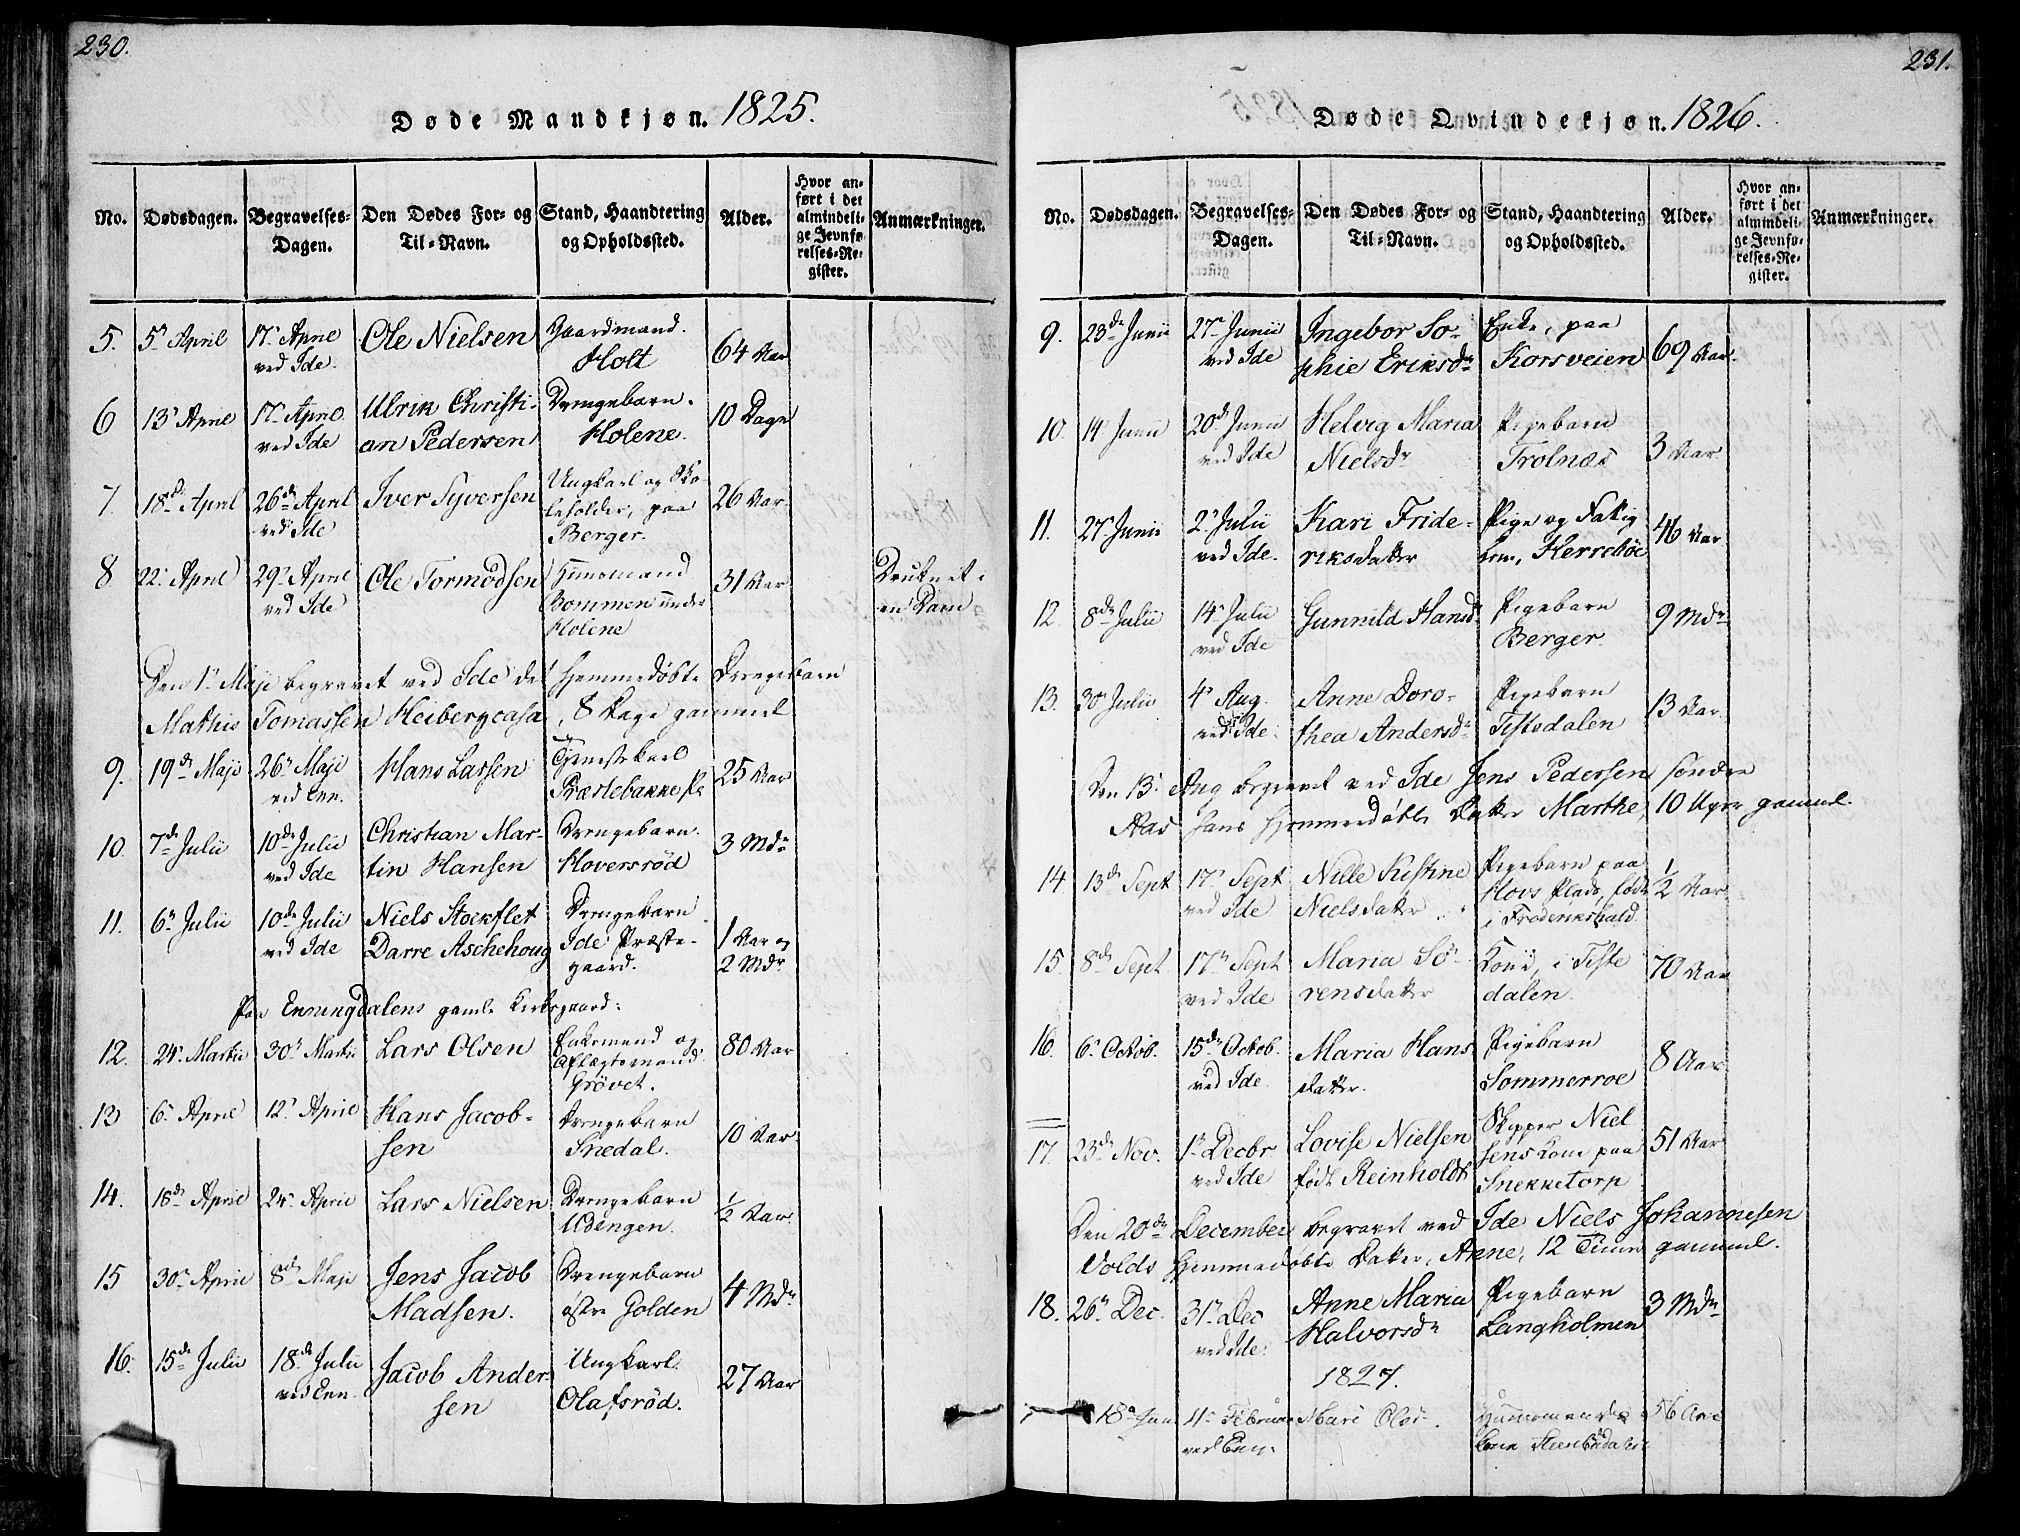 230.
Døde Mandkjøn. 1825.
No. Dødsdagen. Begravelses-Dagen. Den Dødes For- og Til-Navn. Stand, Haandtering og Opholdssted. Alder. Hvor anført i det almindelige Jevnførelses-Register. Anmærkninger.
5. 5r April 17r April ved Ide. Ole Nielsen Gaardmand. Holt 64 Aar
6 13r April 17r April ved Ide Ulrik Christian Pedersen Drengebarn. Holene. 10 Dage
7. 18de April 26de April ved Ide Iver Syversen Ungkarl og Skoleholder, paa Berger. 26 Aar.
8 22r April 29r April ved Ide Ole Tormodsen Huusmand Bommen under Holene 31 Aar Druknet i en Dam
Den 1r Maji begravet ved Ide det hjemmedøbte Drengebarn
Mathis Tomassen Heibergcasa, 8 Dage gammel
9. 19de Maji 26r Maji ved Enn. Hans Larsen Tjenestekarl Præstebakke 25 Aar
10. 7de Julii 10de Julii ved Ide Christian Martin Hansen Drengebarn. Hoversrød 3 Mdr
11. 6r Julii 10de Julii ved Ide Niels Stockflet Darre Aschehoug Drengebarn Ide Præstegaard. 1 Aar og 2 Mdr
Paa Enningdalens gamle Kirkegaard:
12. 24r Martii 30r Martii Lars Olsen Enkemand og Aflægtsmand Grövet. 80 Aar
13 6r April 12r April Hans Jacobsen Drengebarn Snedal. 10 Aar.
14. 18de April 24r April Lars Nielsen Drengebarn Udengen. ½ Aar.
15 30r April 8de Maji Jens Jacob Madsen. Drengebarn østre Golden 4 Mdr
16. 15de Julii 18de Julii ved Enn. Jacob Andersen Ungkarl. Olafsrød. 27 Aar
231.
Døde Qvindekjøn. 1826.
No. Dødsdagen. Begravelses-Dagen. Den Dødes For- og Til-Navn. Stand, Haandtering og Opholdssted. Alder. Hvor anført i det almindelige Jevnførelses-Register. Anmærkninger.
9. 23de Junii 27r Junii ved Ide Ingebor Sophie Eriksdr Enke, paa Korsveien 69 Aar.
10. 14r Junii 20de Junii ved Ide Helvig Maria Nielsdr Pigebarn Trolnæs 3 Aar
11. 27r Junii 2r Julii ved Ide. Kari Frideriksdatter Pige og Fattiglem, Herrebøe 46 Aar
12. 8de Julii 14r Julii ved Ide Gunnild Hansdr Pigebarn Berger. 9 Mdr
13. 30r Julii 4r Aug. ved Ide. Anne Dorothea Andersdr Pigebarn Tistedalen 13 Aar.
Den 13r Aug begravet ved Ide Jens Pedersen søndre
Aas hans hjemmedøbte Datter Marthe, 10 Uger gammel.
14 13de Sept 17r Sept ved Ide Nille Kistine Nielsdatter Pigebarn paa Hovs Plads, født i Frederikshald. ½ Aar.
15. 8de Sept. 17r Sept ved Ide Maria Sörensdatter Kone, i Tistedalen. 70 Aar
16. 6r Octob. 15de Octob. ved Ide. Maria Hansdatter. Pigebarn Sommerroe 8 Aar
17. 23de Nov. 1r Decbr ved Ide Lovise Nielsen født Reinholdt Skipper Nielsens Kone paa Snekketorp 51 Aar
Den 20de December begravet ved Ide Niels Johannesen
Volds hjemmedøbte Datter, Anne, 12 Timer gammel.
18. 26r Dec. 31r Dec ved Ide. Anne Maria Halvorsdr Pigebarn Langholmen 3 Mdr
1827.
18r Jan 11r Februar ved Enn. Mari Olsdr. Huusmands Kone 56 Aar